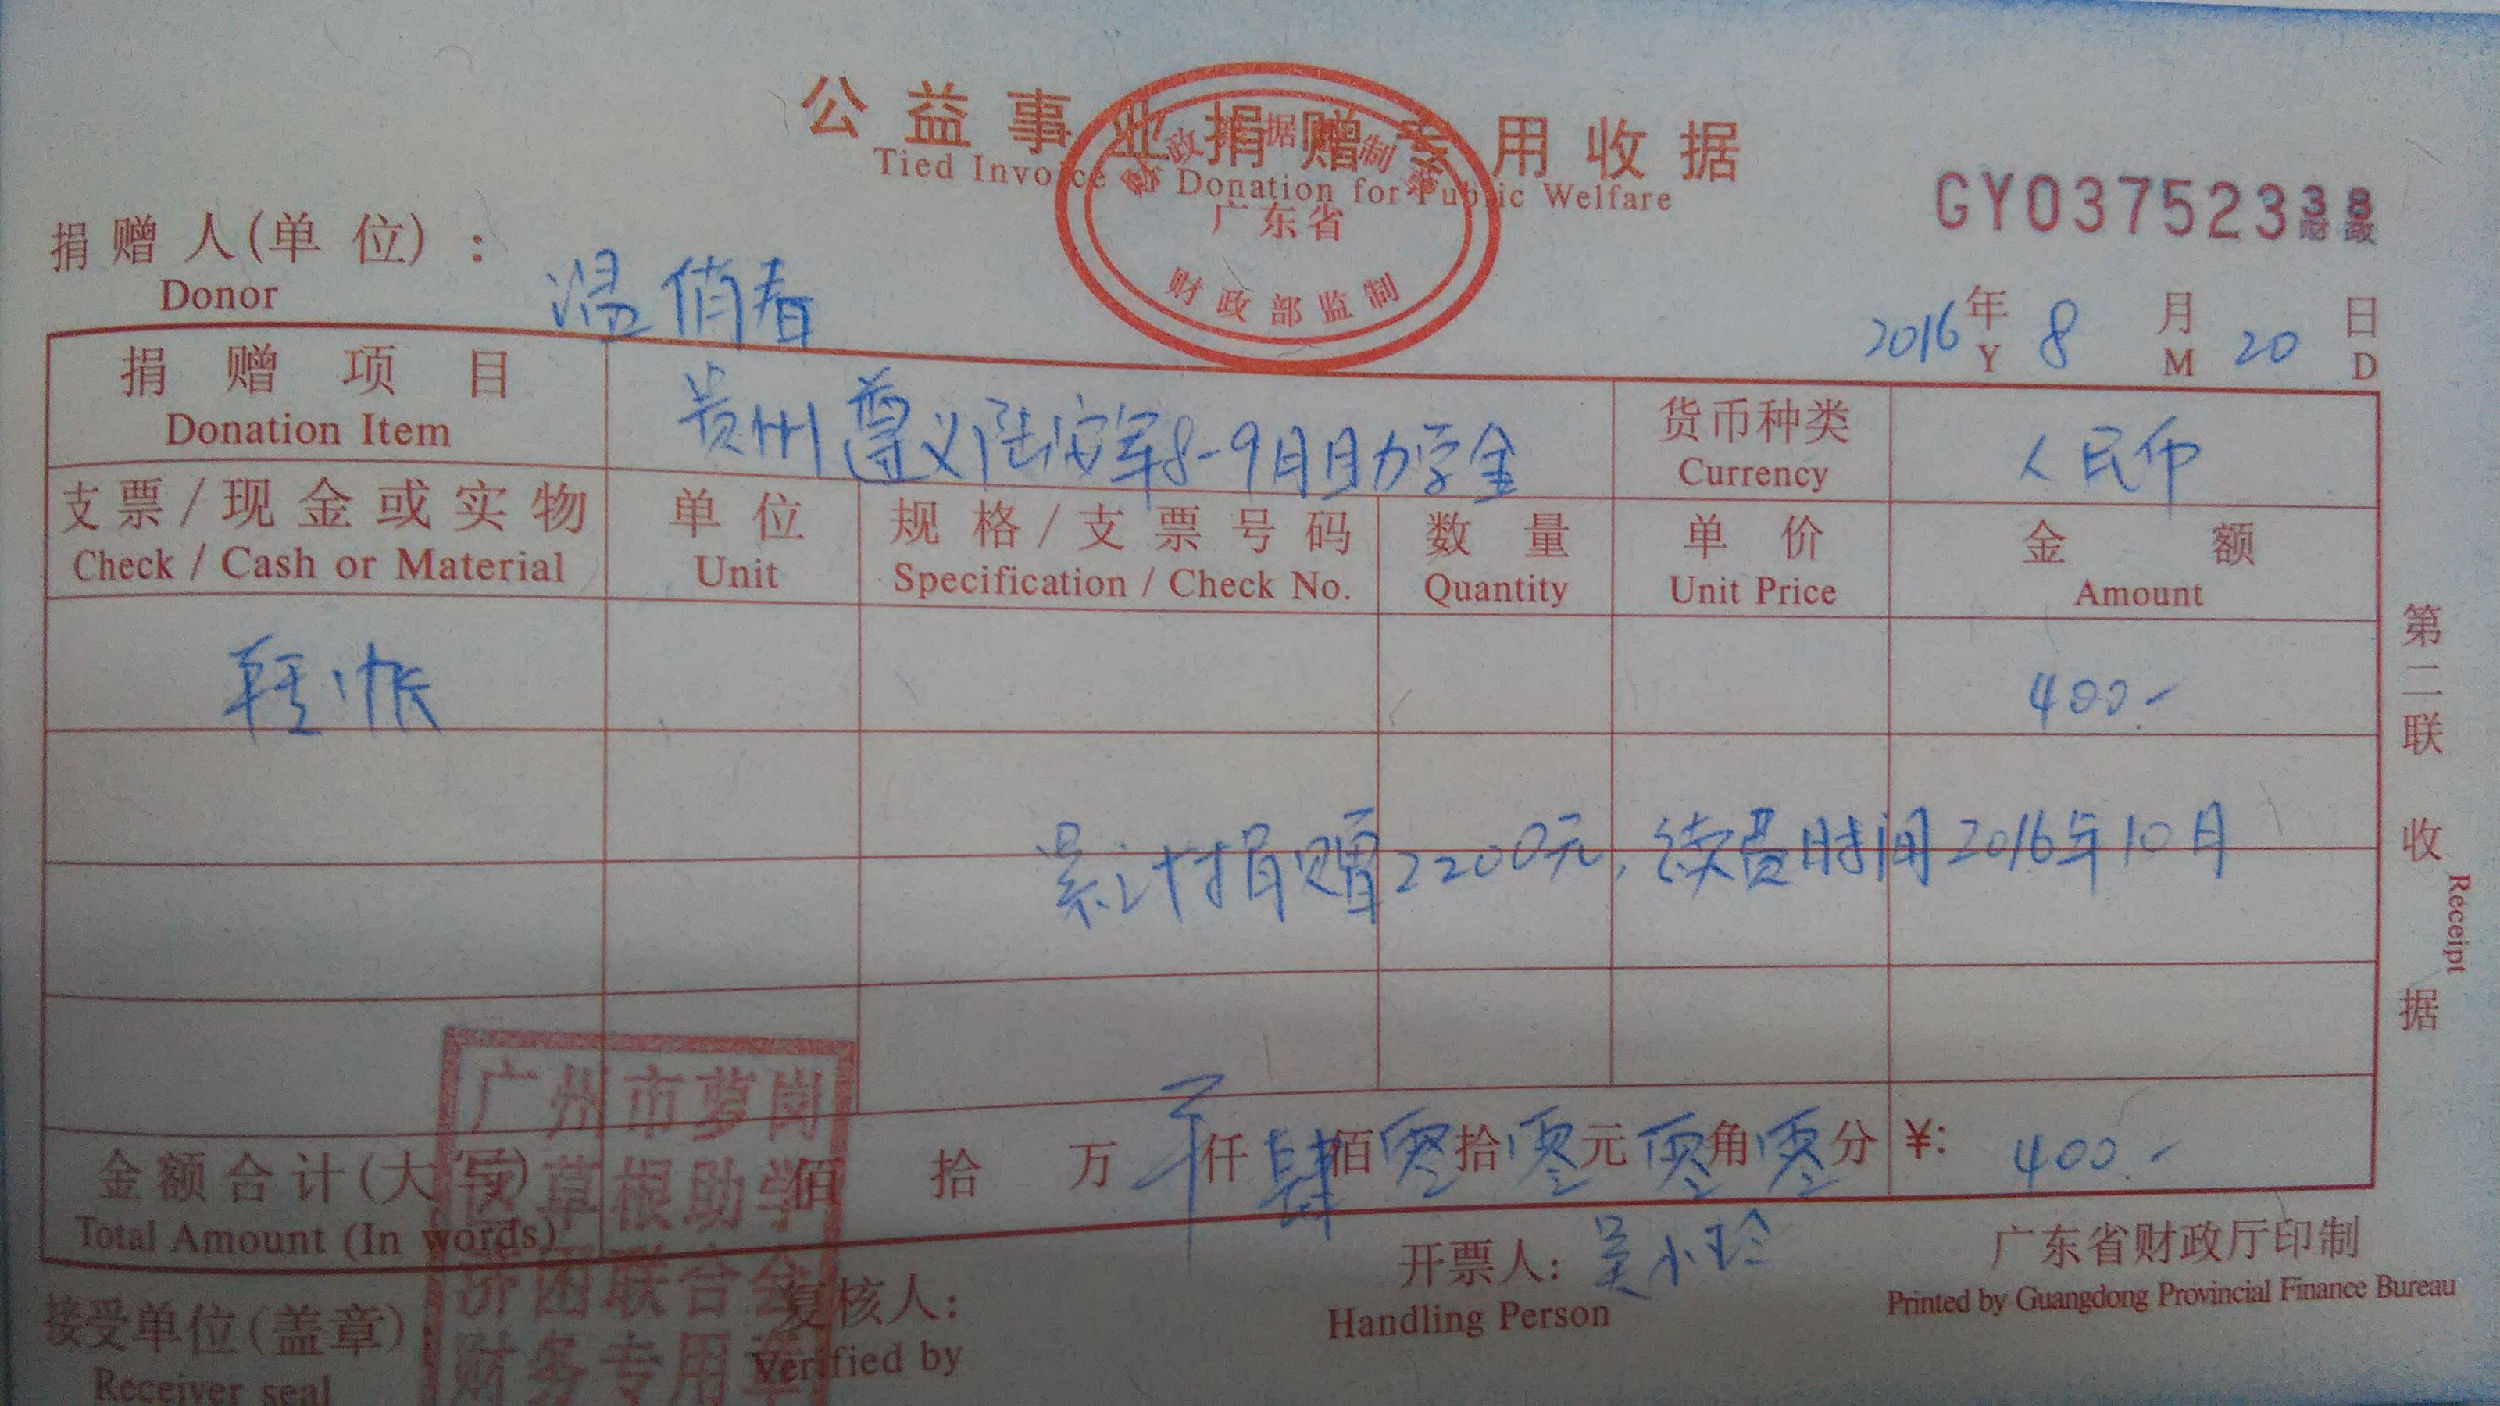 公益事业捐赠专用收据
Tied Invoice of Donation for Public Welfare
广东省
财政部监制
GY03752338
捐赠人(单位):
Donor
温俏春
2016年8月20日
Y M D
捐赠项目
Donation Item
贵州遵义陆安军8-9月助学金
货币种类
Currency
人民币
支票/现金或实物
Check / Cash or Material
单位
Unit
规格/支票号码
Specification / Check No.
数量
Quantity
单价
Unit Price
金额
Amount
转帐
400.-
累计捐赠2200元,续费时间2016年10月
金额合计(大写)
Total Amount (In words)
佰 拾 万 仟肆佰零拾零元零角零分
¥: 400.-
接受单位(盖章)
Receiver seal
复核人:
Verified by
开票人: 吴小玲
Handling Person
广东省财政厅印制
Printed by Guangdong Provincial Finance Bureau
广州市萝岗
区草根助学
济困联合会
财务专用章
第二联 收据
Receipt